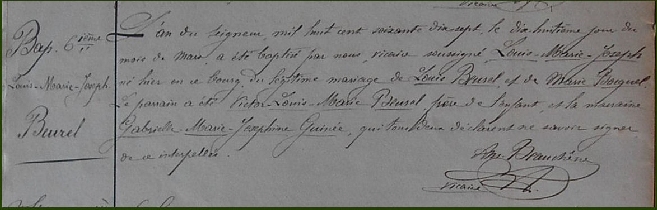 Bap. 6ième
Louis-Marie-Joseph
Beurel
L'an du Seigneur, mil huit cent soixante dix-sept le dix huitième jour du
mois de Mars, a été baptisé par nous, vicaire soussigné Louis-Marie-Joseph
né hier en ce bourg du légitime mariage de Louis Beurel et de Marie
Le parrain a été Louis-Marie Beurel père de l'enfant, et la marraine
Gabrielle Marie-Josephine Guinée, qui tous deux déclarent ne savoir signer
de ce interpelés.
vicaire